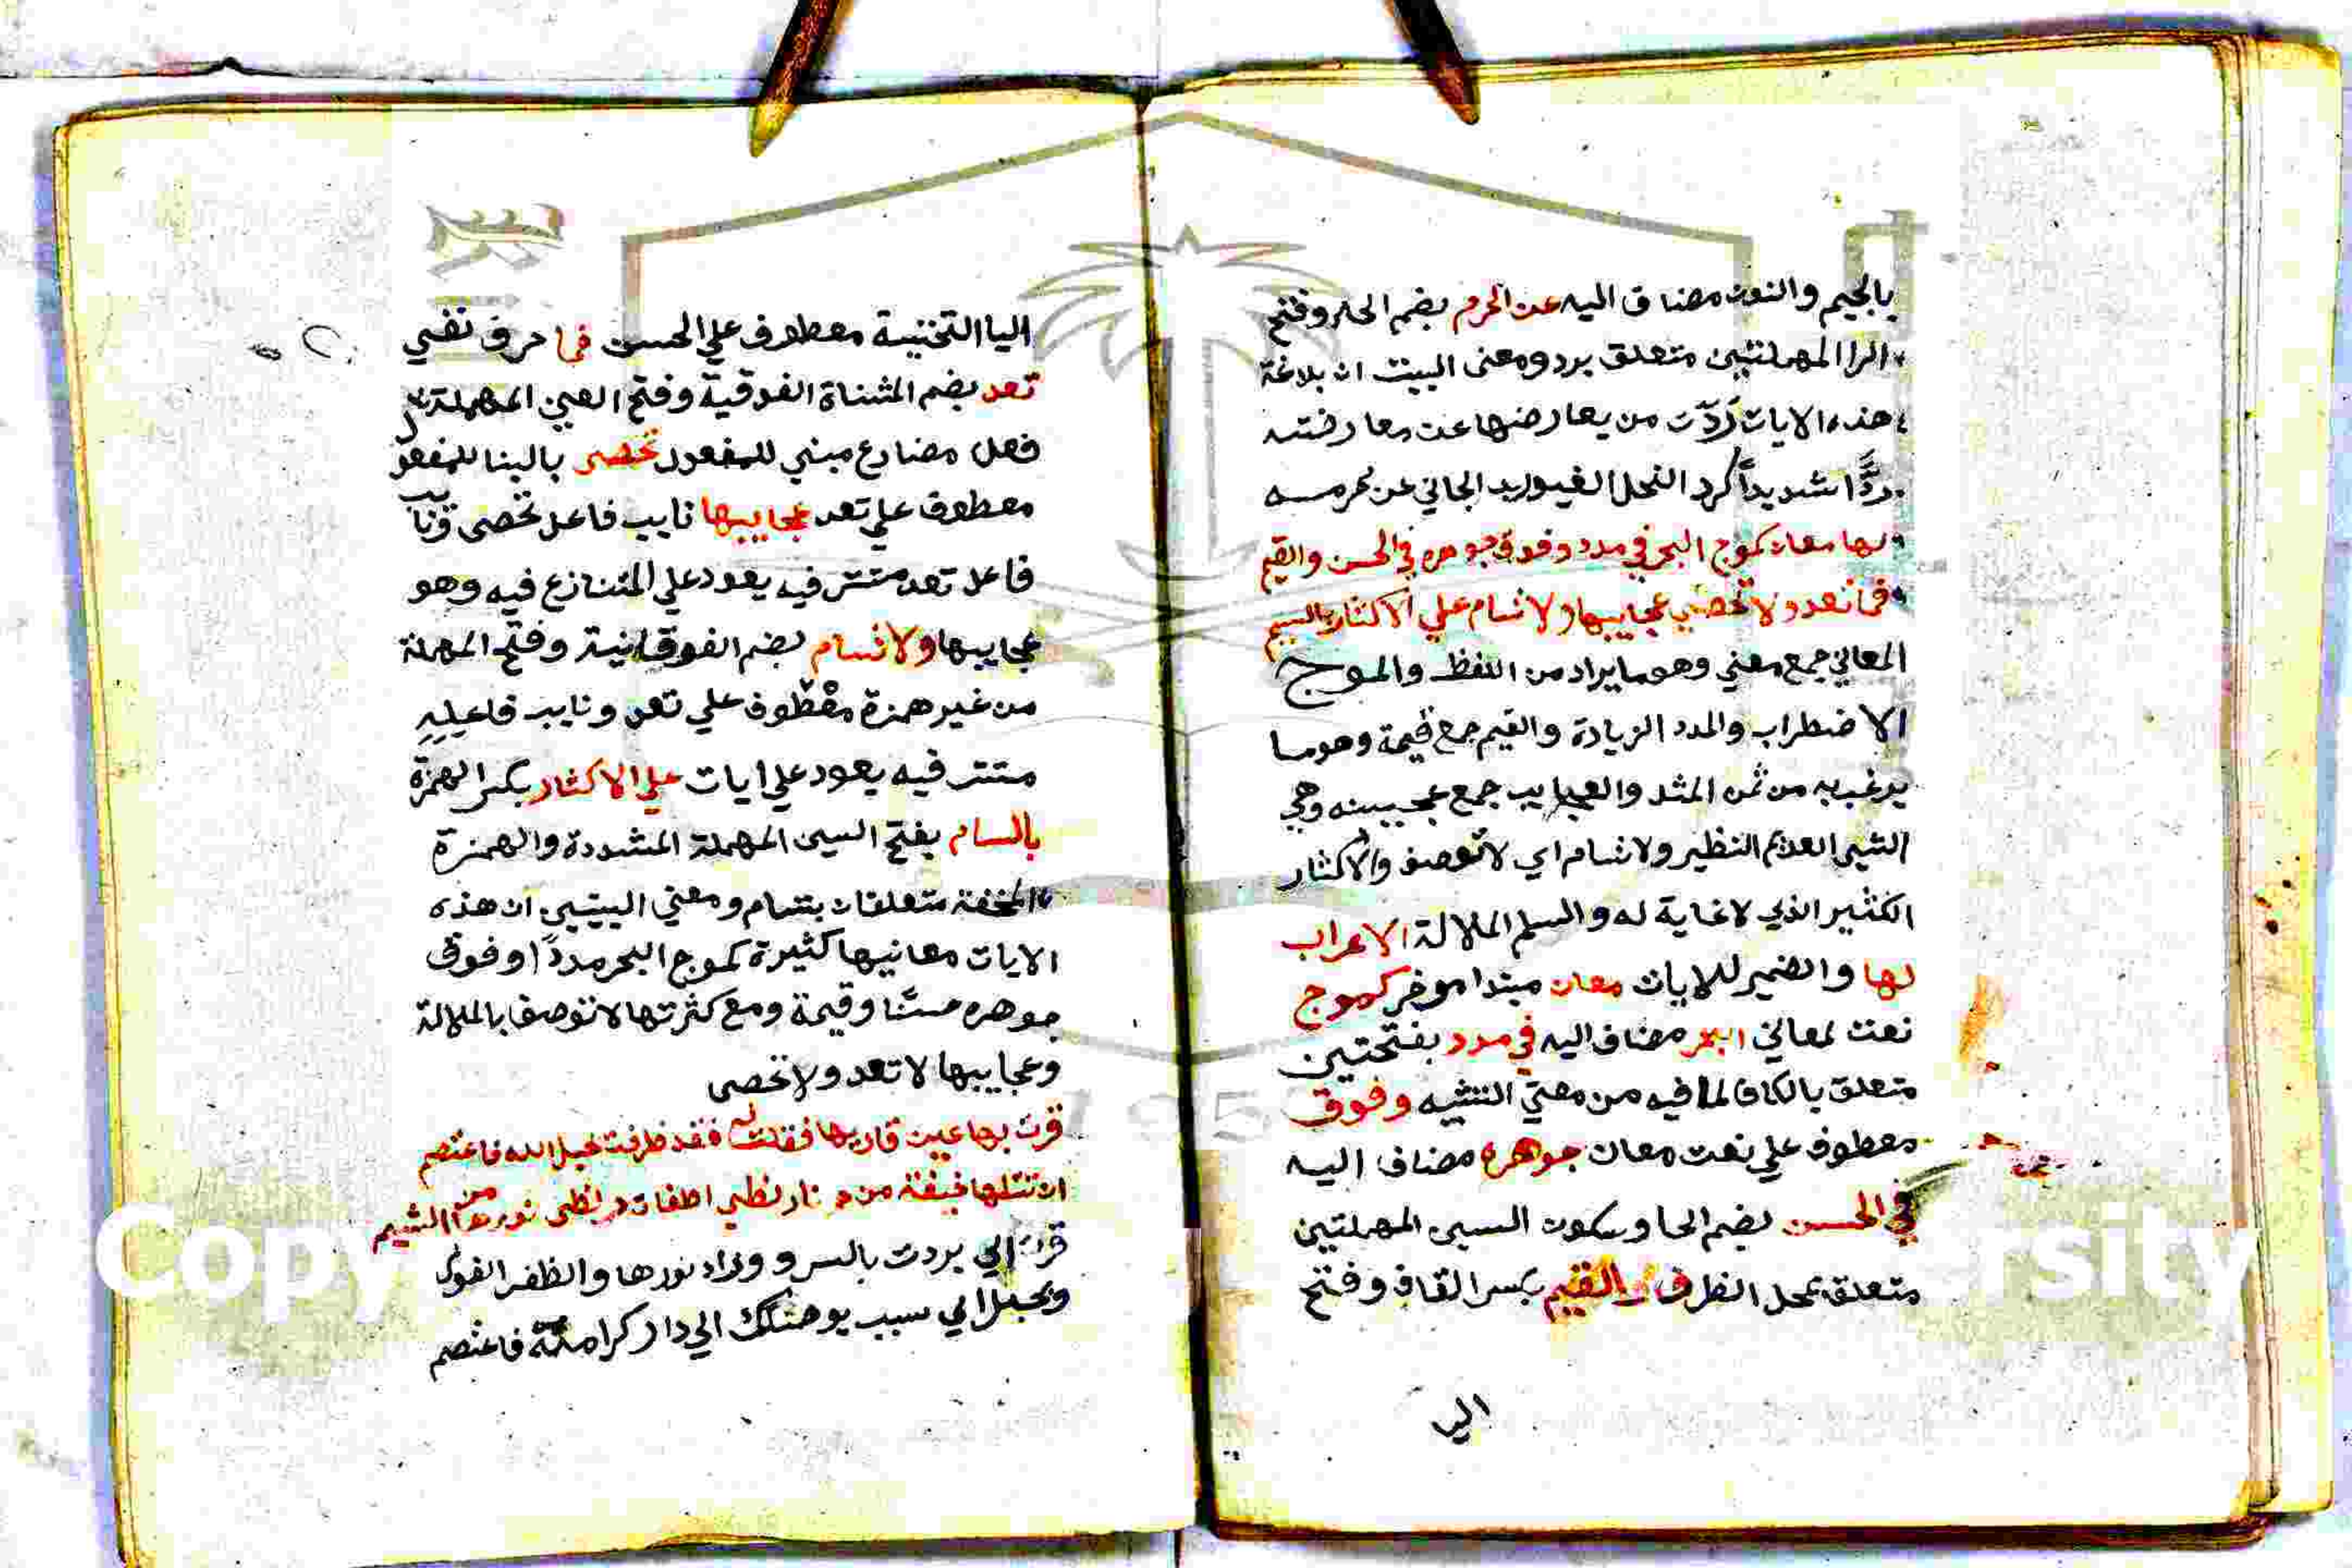 بالجيم والنون مضاف اليه عن الحرم بضم الحا وفتح
الرا المهملتين متعلق برد ومعنى البيت ان بلاغة
هذه الايات ردّت من يعارضها عن معارضته
ردًّا شديداً كرد الفحل الغيور يد الجاني عن حرمه
لها معان كموج البحر في مدد وفوق جوهره في الحسن والقيم
فما تعد ولا تحصي عجايبها ولا تسام علي الاكثار بالسيم
المعاني جمع معني وهو ما يراد من اللفظ والموج
الاضطراب والمدد الزيادة والقيم جمع قيمة وهو ما
يرغب به من ثمن المثل والعجايب جمع عجيبه وهي
الشي العديم النظير ولا تسام اي لا توصف والاكثار
الكثير الذي لا غاية له والسام الملالة الاعراب
لها والضمير للايات معان مبتدا موخر كموج
نعت لمعاني البحر مضاف اليه في مدد بفتحتين
متعلق بالكاف لما فيه من معني التشبيه وفوق
معطوف علي نعت معان جوهره مضاف اليه
في الحسن بضم الحا وسكون السين المهملتين
متعلق بمحل الظرف والقيم بكسر القاف وفتح
اليا
اليا التحتية معطوف علي الحسن فما حرف نفي
تعد بضم المثناة الفوقية وفتح العين المهملة
فعل مضارع مبني للمفعول تحصى بالبنا للمفعول
معطوف علي تعد عجايبها نايب فاعل تحصى ونايب
فاعل تعد مستتر فيه يعود علي المتنازع فيه وهو
عجايبها ولا تسام بضم الفوقانية وفتح المهملة
من غير همزة معطوف علي تعد ونايب فاعله
مستتر فيه يعود علي ايات علي الاكثار بكسر الهمزة
بالسام بفتح السين المهملة المشددة والهمزة
المخففة متعلقان بتسام ومعني البيتين ان هذه
الايات معانيها كثيرة كموج البحر مددًا وفوق
جوهره حسنًا وقيمة ومع كثرتها لا توصف بالملالة
وعجايبها لا تعد ولا تحصى
قرت بها عين قاريها فقلت له فقد ظفرت بحبل الله فاعتصم
ان تتلها خيفة من حر نار لظي اطفات حر لظى من وردها الشيم
قرت اي بردت بالسرور وزاد نورها والظفر الفوز
وبحبل اي سبب يوصلك الي دار كرامته فاعتصم